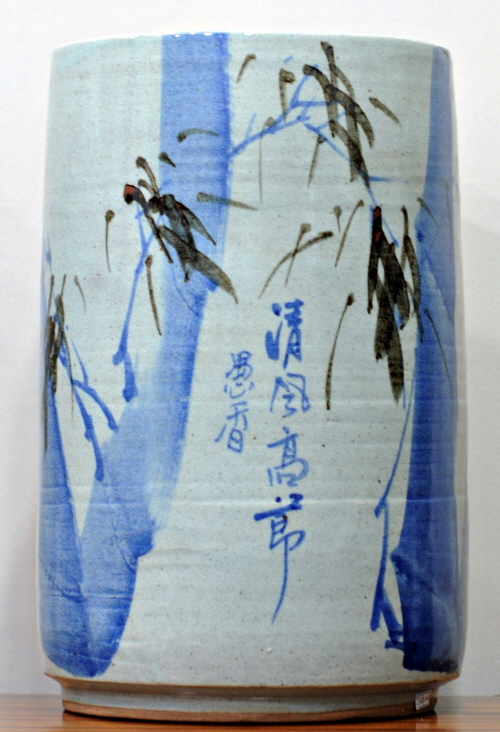 清风高節
愚香